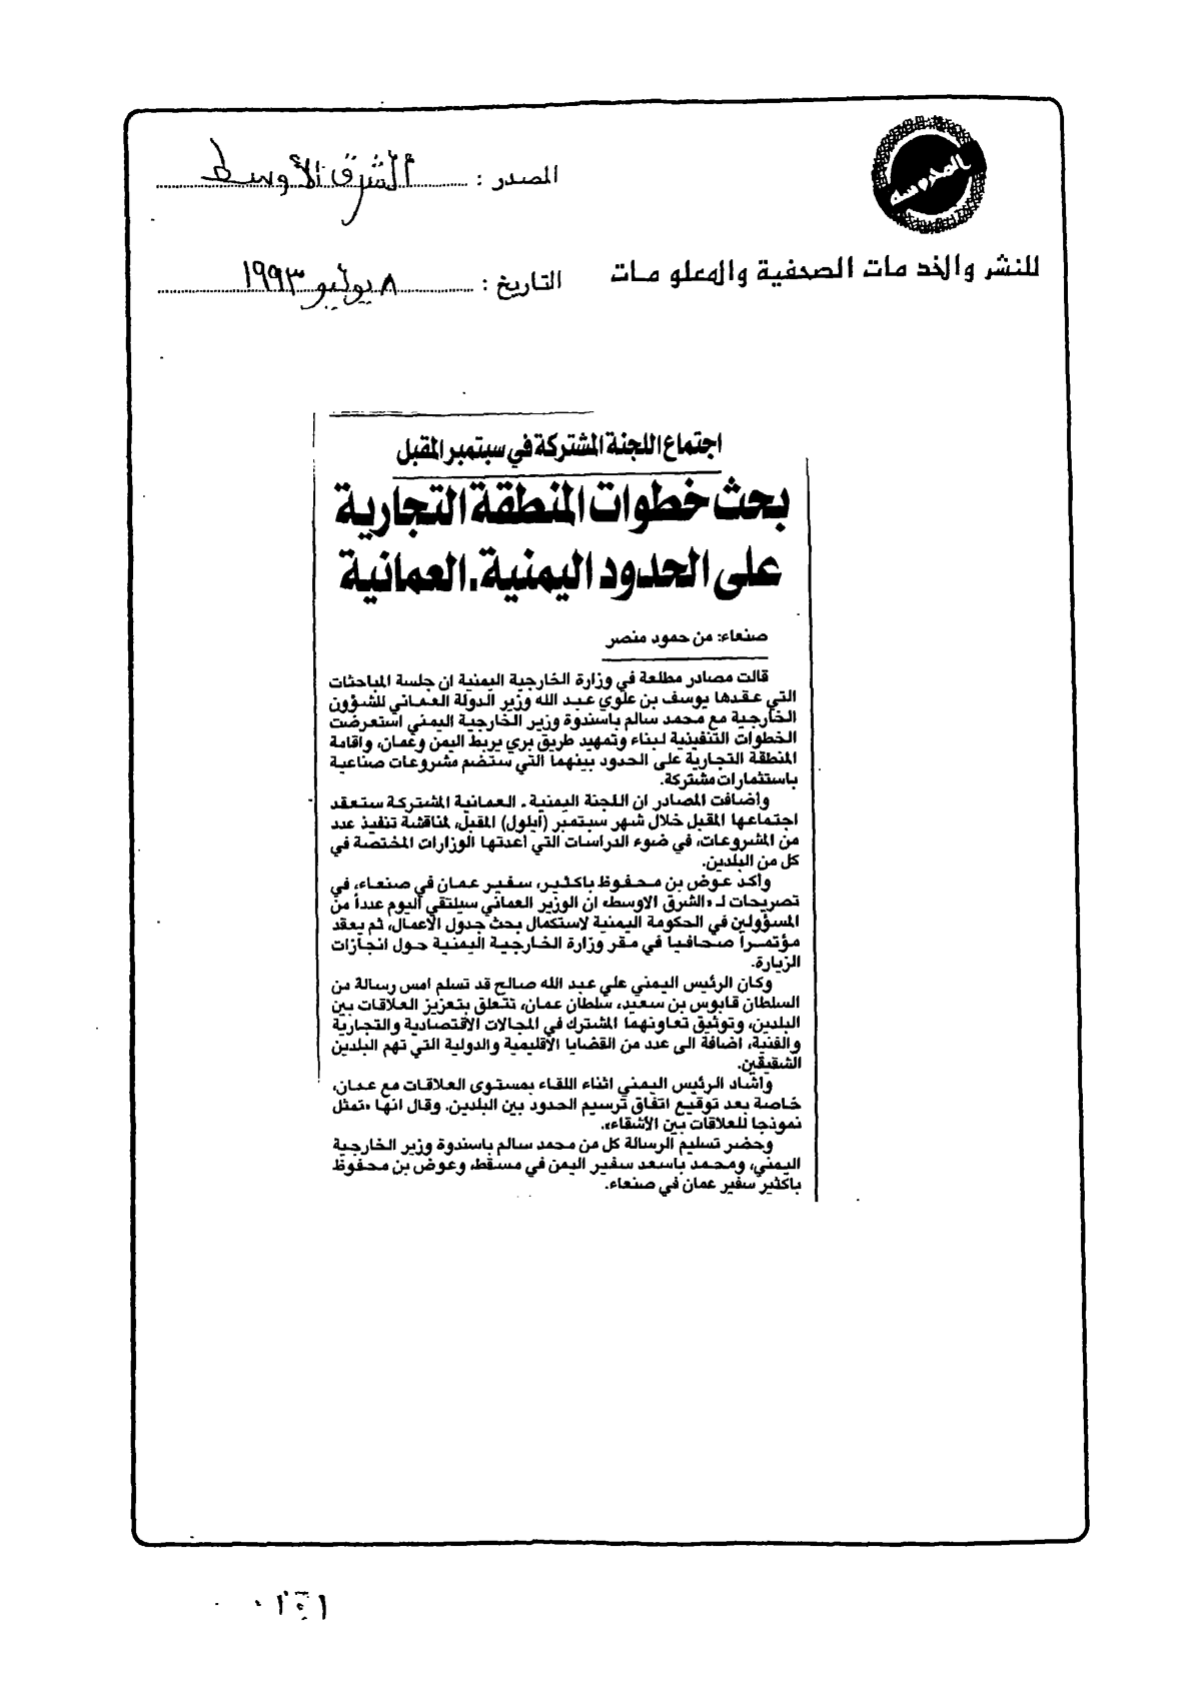 المحروسة
للنشر والخدمات الصحفية والمعلومات
المصدر : الشرق الأوسط
التاريخ : ٨ يوليو ١٩٩٣
اجتماع اللجنة المشتركة في سبتمبر المقبل
بحث خطوات المنطقة التجارية
على الحدود اليمنية ـ العمانية
صنعاء: من حمود منصر
قالت مصادر مطلعة في وزارة الخارجية اليمنية ان جلسة المباحثات
التي عقدها يوسف بن علوي عبد الله وزير الدولة العماني للشؤون
الخارجية مع محمد سالم باسندوة وزير الخارجية اليمني استعرضت
الخطوات التنفيذية لبناء وتمهيد طريق بري يربط اليمن وعمان، واقامة
المنطقة التجارية على الحدود بينهما التي ستضم مشروعات صناعية
باستثمارات مشتركة.
وأضافت المصادر ان اللجنة اليمنية ـ العمانية المشتركة ستعقد
اجتماعها المقبل خلال شهر سبتمبر (ايلول) المقبل، لمناقشة تنفيذ عدد
من المشروعات، في ضوء الدراسات التي أعدتها الوزارات المختصة في
كل من البلدين.
وأكد عوض بن محفوظ باكثير، سفير عمان في صنعاء، في
تصريحات لـ «الشرق الاوسط» ان الوزير العماني سيلتقي اليوم عدداً من
المسؤولين في الحكومة اليمنية لاستكمال بحث جدول الأعمال، ثم يعقد
مؤتمراً صحافيا في مقر وزارة الخارجية اليمنية حول انجازات
الزيارة.
وكان الرئيس اليمني علي عبد الله صالح قد تسلم امس رسالة من
السلطان قابوس بن سعيد، سلطان عمان، تتعلق بتعزيز العلاقات بين
البلدين، وتوثيق تعاونهما المشترك في المجالات الاقتصادية والتجارية
والفنية، اضافة الى عدد من القضايا الاقليمية والدولية التي تهم البلدين
الشقيقين.
واشاد الرئيس اليمني اثناء اللقاء بمستوى العلاقات مع عمان،
خاصة بعد توقيع اتفاق ترسيم الحدود بين البلدين. وقال انها «تمثل
نموذجا للعلاقات بين الأشقاء».
وحضر تسليم الرسالة كل من محمد سالم باسندوة وزير الخارجية
اليمني، ومحمد باسعد سفير اليمن في مسقط، وعوض بن محفوظ
باكثير سفير عمان في صنعاء.